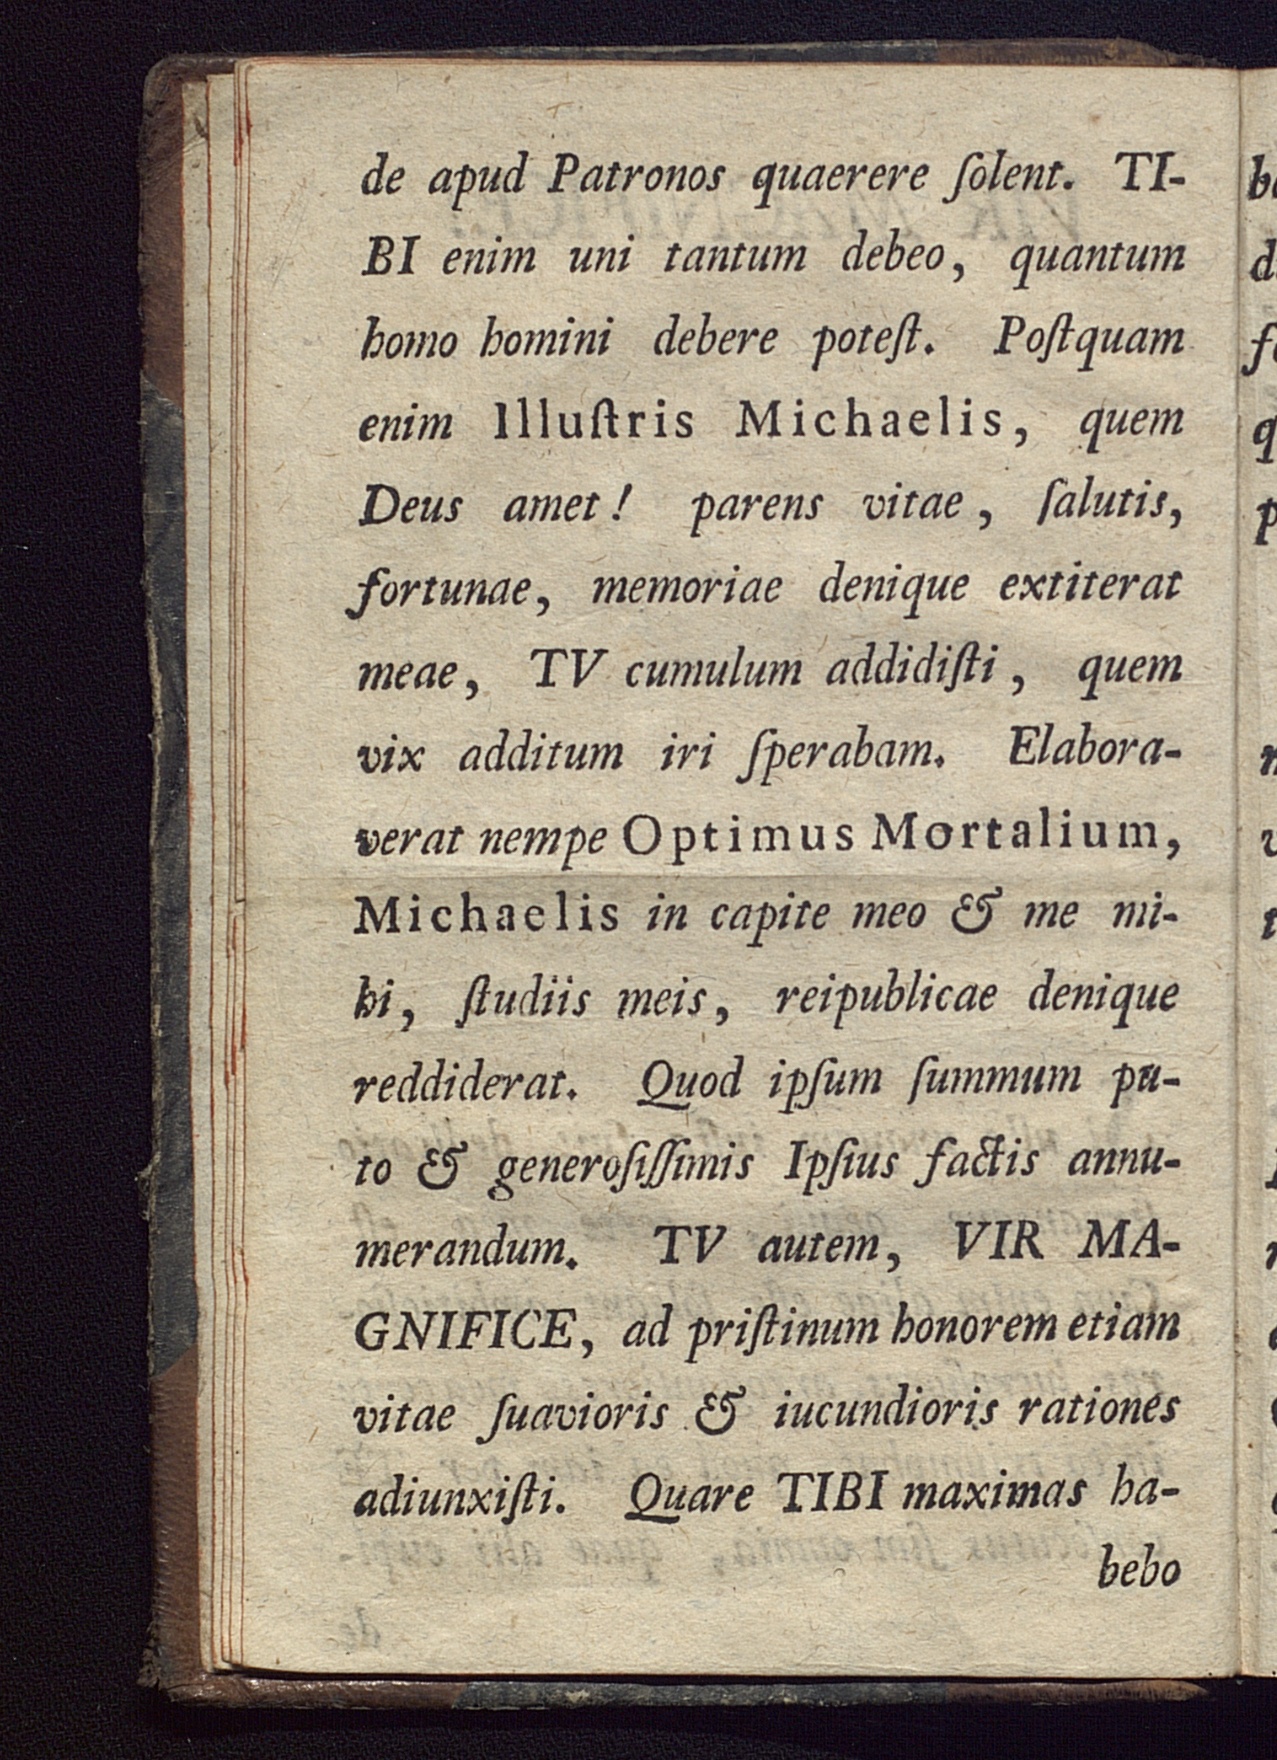 de apud Patronos quaerere ſolent. TI-
BI enim uni tantum debeo, quantum
homo homini debere poteſt. Poſtquam
enim Illuſtris Michaelis, quem
Deus amet! parens vitae, ſalutis,
fortunae, memoriae denique extiterat
meae, TV cumulum addidiſti, quem
vix additum iri ſperabam. Elabora-
verat nempe Optimus Mortalium,
Michaelis in capite meo & me mi-
hi, ſtudiis meis, reipublicae denique
reddiderat. Quod ipſum ſummum pu-
to & generoſiſſimis Ipſius factis annu-
merandum. TV autem, VIR MA-
GNIFICE, ad priſtinum honorem etiam
vitae ſuavioris & iucundioris rationes
adiunxiſti. Quare TIBI maximas ha-
bebo